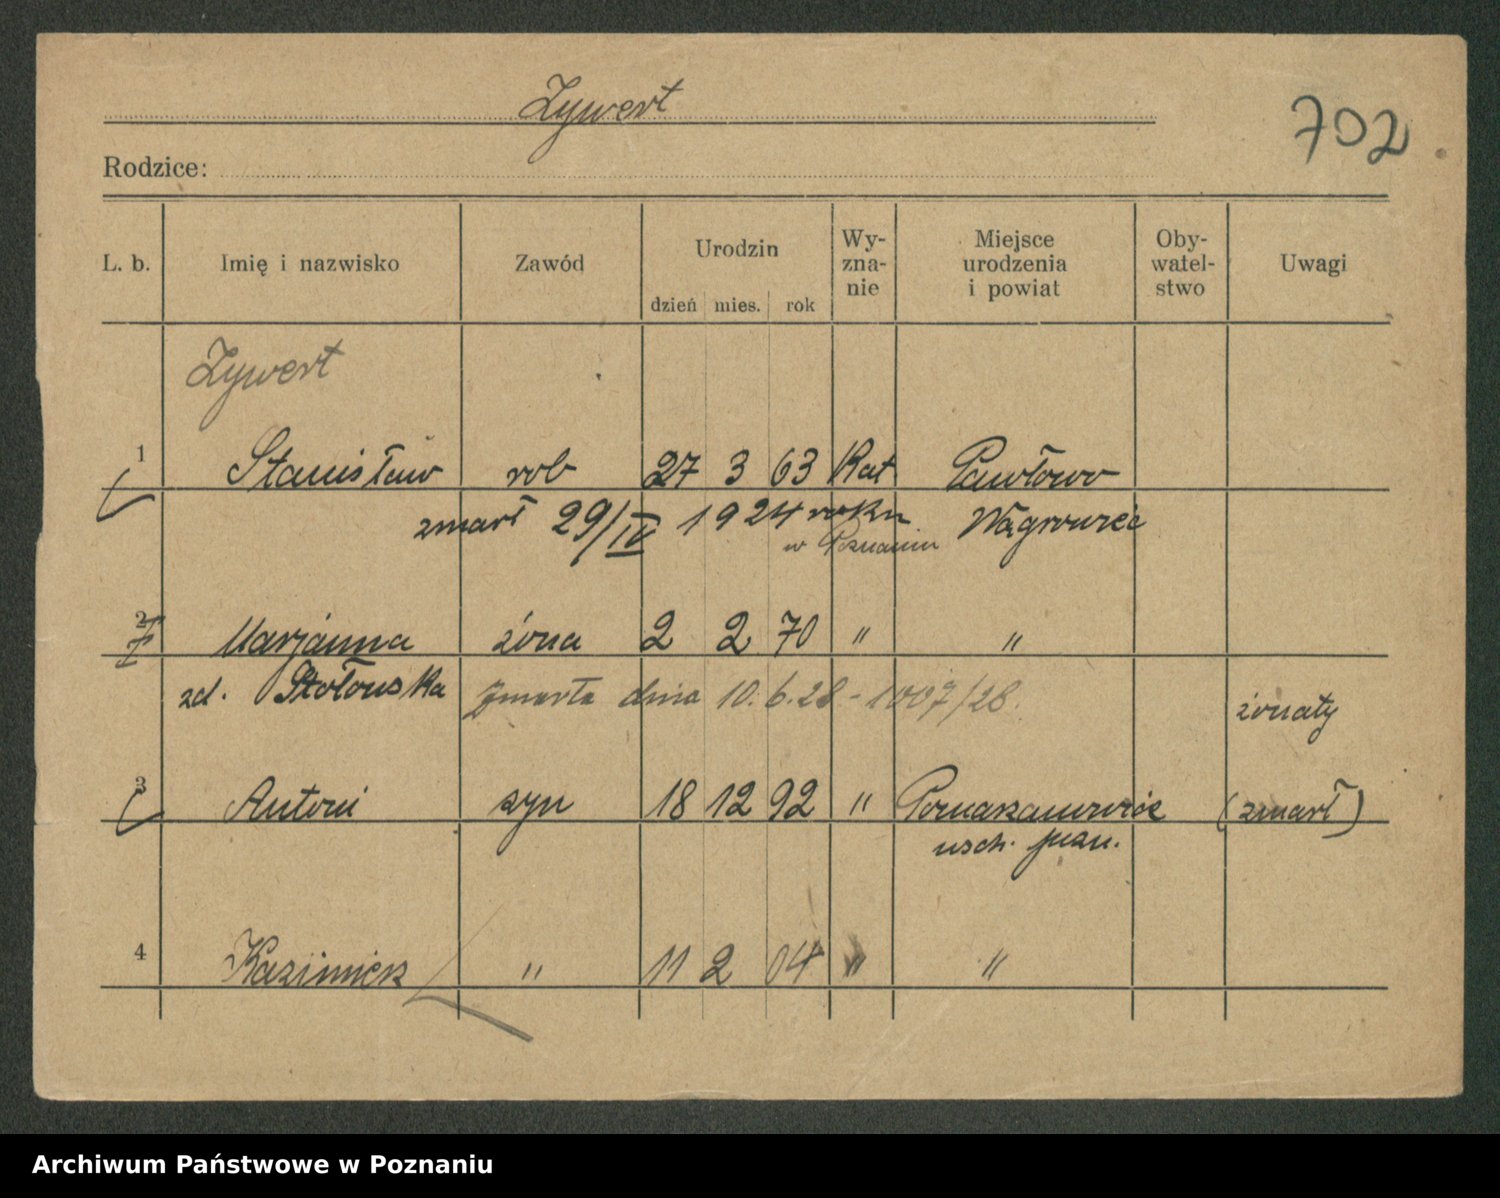 Zywert
702
Rodzice:
L. b. Imię i nazwisko Zawód Urodzin dzień mies. rok Wy-zna-nie Miejsce urodzenia i powiat Oby-watel-stwo Uwagi
Zywert
1 Stanisław rob 27 3 63 Kat Pawłowo
zmarł 29/IV 1924 roku Wągrowiec
w Poznaniu
2 Marjanna żona 2 2 70 " "
zd. Stołowska zmarła dnia 10.6.28 - 1007/28.
żonaty
3 Antoni syn 18 12 92 " (zmarł)
4 Kazimierz " 11 2 04 " "
Archiwum Państwowe w Poznaniu